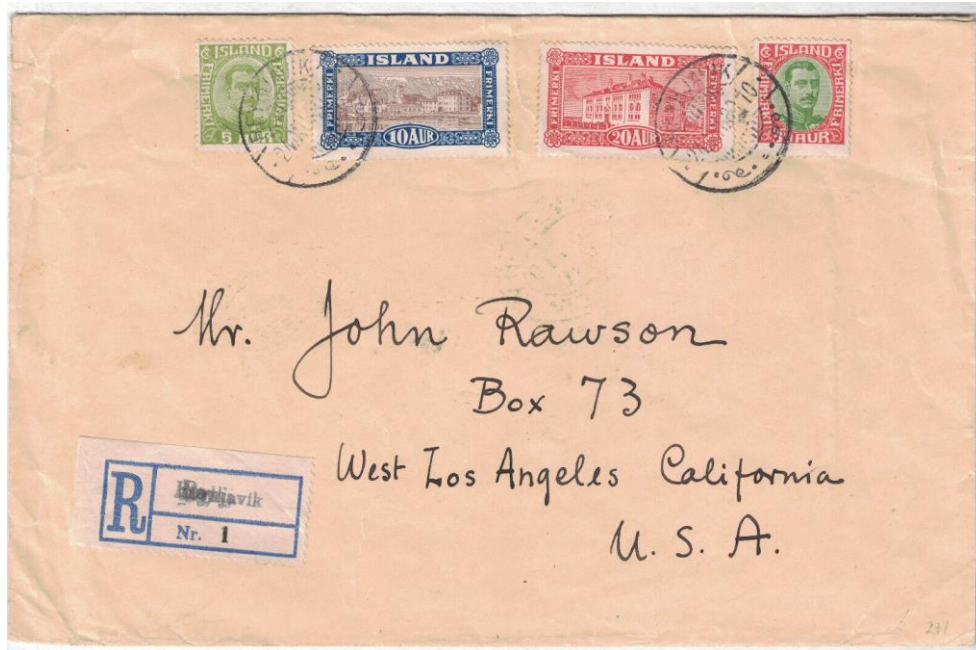 ISLAND
FRIMERKI FRIMERKI
5
ISLAND
FRIMERKI FRIMERKI
10 AUR
ISLAND
FRIMERKI FRIMERKI
20 AUR
ISLAND
FRIMERKI
AUR
Mr. John Rawson
Box 73
West Los Angeles California
U. S. A.
R
Nr. 1
271